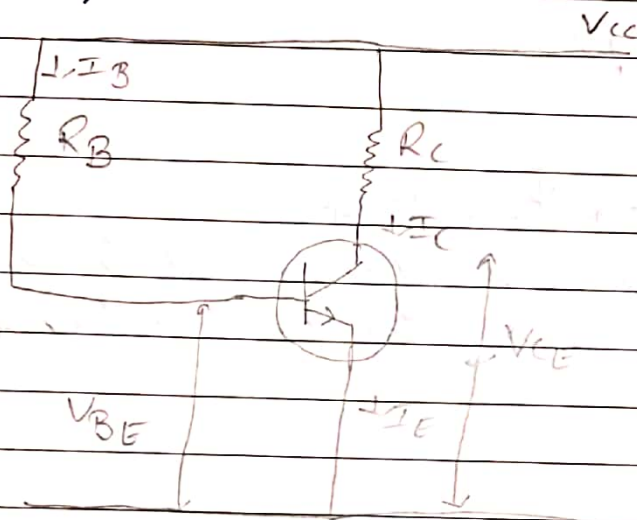 Vcc
↓IB
RB
RC
↓IC
VCE
VBE
↓IE